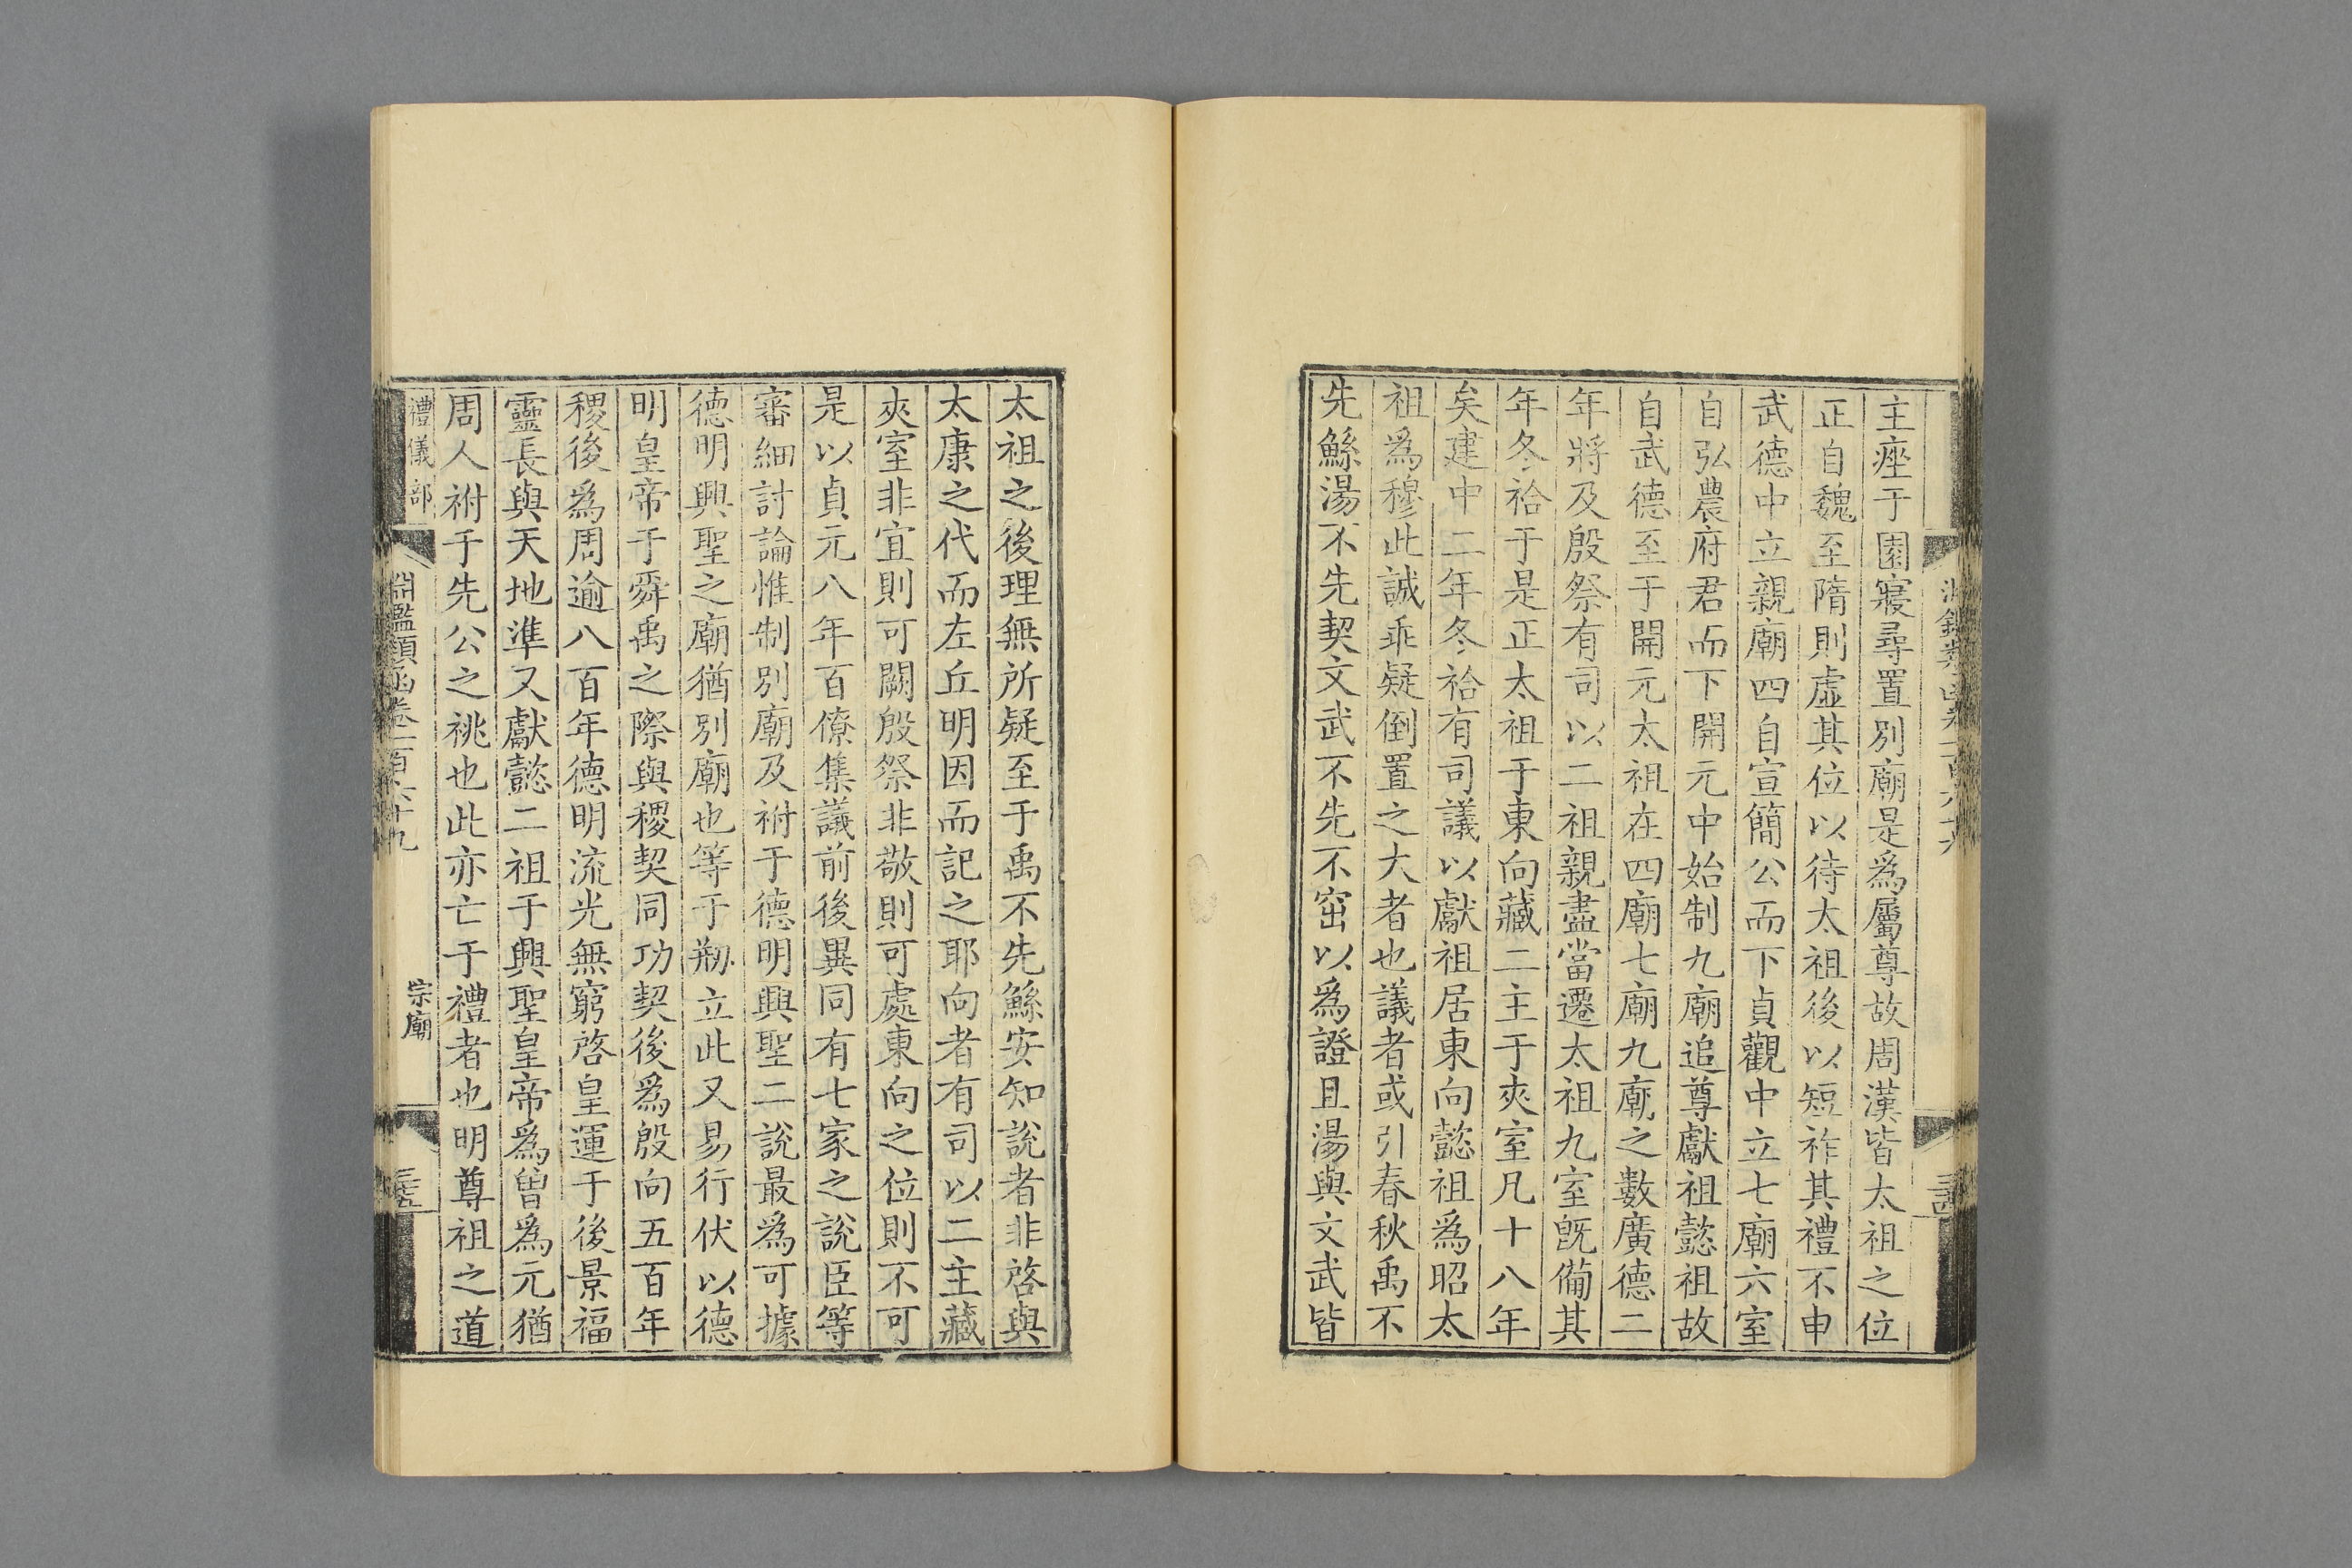 主瘞于園寢尋置別廟是爲屬尊故周漢皆太祖之位
正自魏至隋則虛其位以待太祖後以短祚其禮不申
武德中立親廟四自宣簡公而下貞觀中立七廟六室
自弘農府君而下開元中始制九廟追尊獻祖懿祖故
自武德至于開元太祖在四廟七廟九廟之數廣德二
年將及殷祭有司以二祖親盡當遷太祖九室旣備其
年冬祫于是正太祖于東向藏二主于夾室凡十八年
矣建中二年冬祫有司議以獻祖居東向懿祖爲昭太
祖爲穆此誠乖疑倒置之大者也議者或引春秋禹不
先鯀湯不先契文武不先不窋以爲證且湯與文武皆
太祖之後理無所疑至于禹不先鯀安知說者非啓與
太康之代而左丘明因而記之耶向者有司以二主藏
夾室非宜則可闕殷祭非敬則可處東向之位則不可
是以貞元八年百僚集議前後異同有七家之說臣等
審細討論惟制別廟及祔于德明興聖二說最爲可據
德明興聖之廟猶別廟也等于剏立此又易行伏以德
明皇帝于舜禹之際與稷契同功契後爲殷向五百年
稷後爲周逾八百年德明流光無窮啓皇運于後景福
靈長與天地準又獻懿二祖于興聖皇帝爲曾爲元猶
周人祔于先公之祧也此亦亡于禮者也明尊祖之道
禮儀部
淵鑑類函卷一百六十九
宗廟
三五